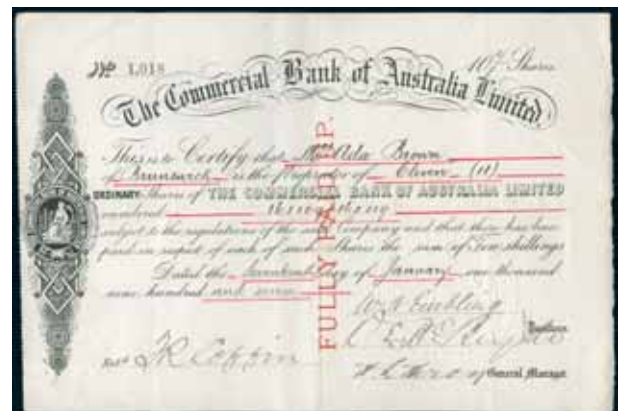 No 1,018 10/- Shares
The Commercial Bank of Australia Limited.
This is to Certify that Ada Brown
of Brunswick is the Proprietor of Eleven (11)
ORDINARY Shares of THE COMMERCIAL BANK OF AUSTRALIA LIMITED
numbered
subject to the regulations of the said Company and that there has been
paid in respect of each of such Shares the sum of Ten shillings
Dated the day of January one thousand
nine hundred and seven
FULLY PAID UP.
Directors
General Manager